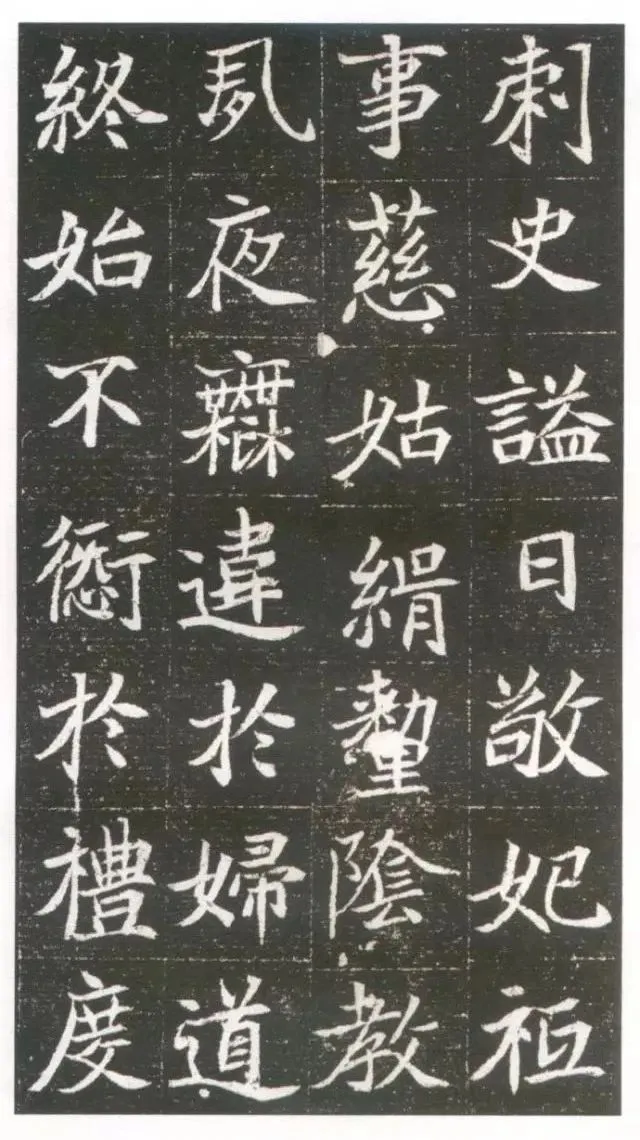 刺史謚曰敬妃祗
事慈姑緝釐陰教
夙夜靡違於婦道
終始不愆於禮度